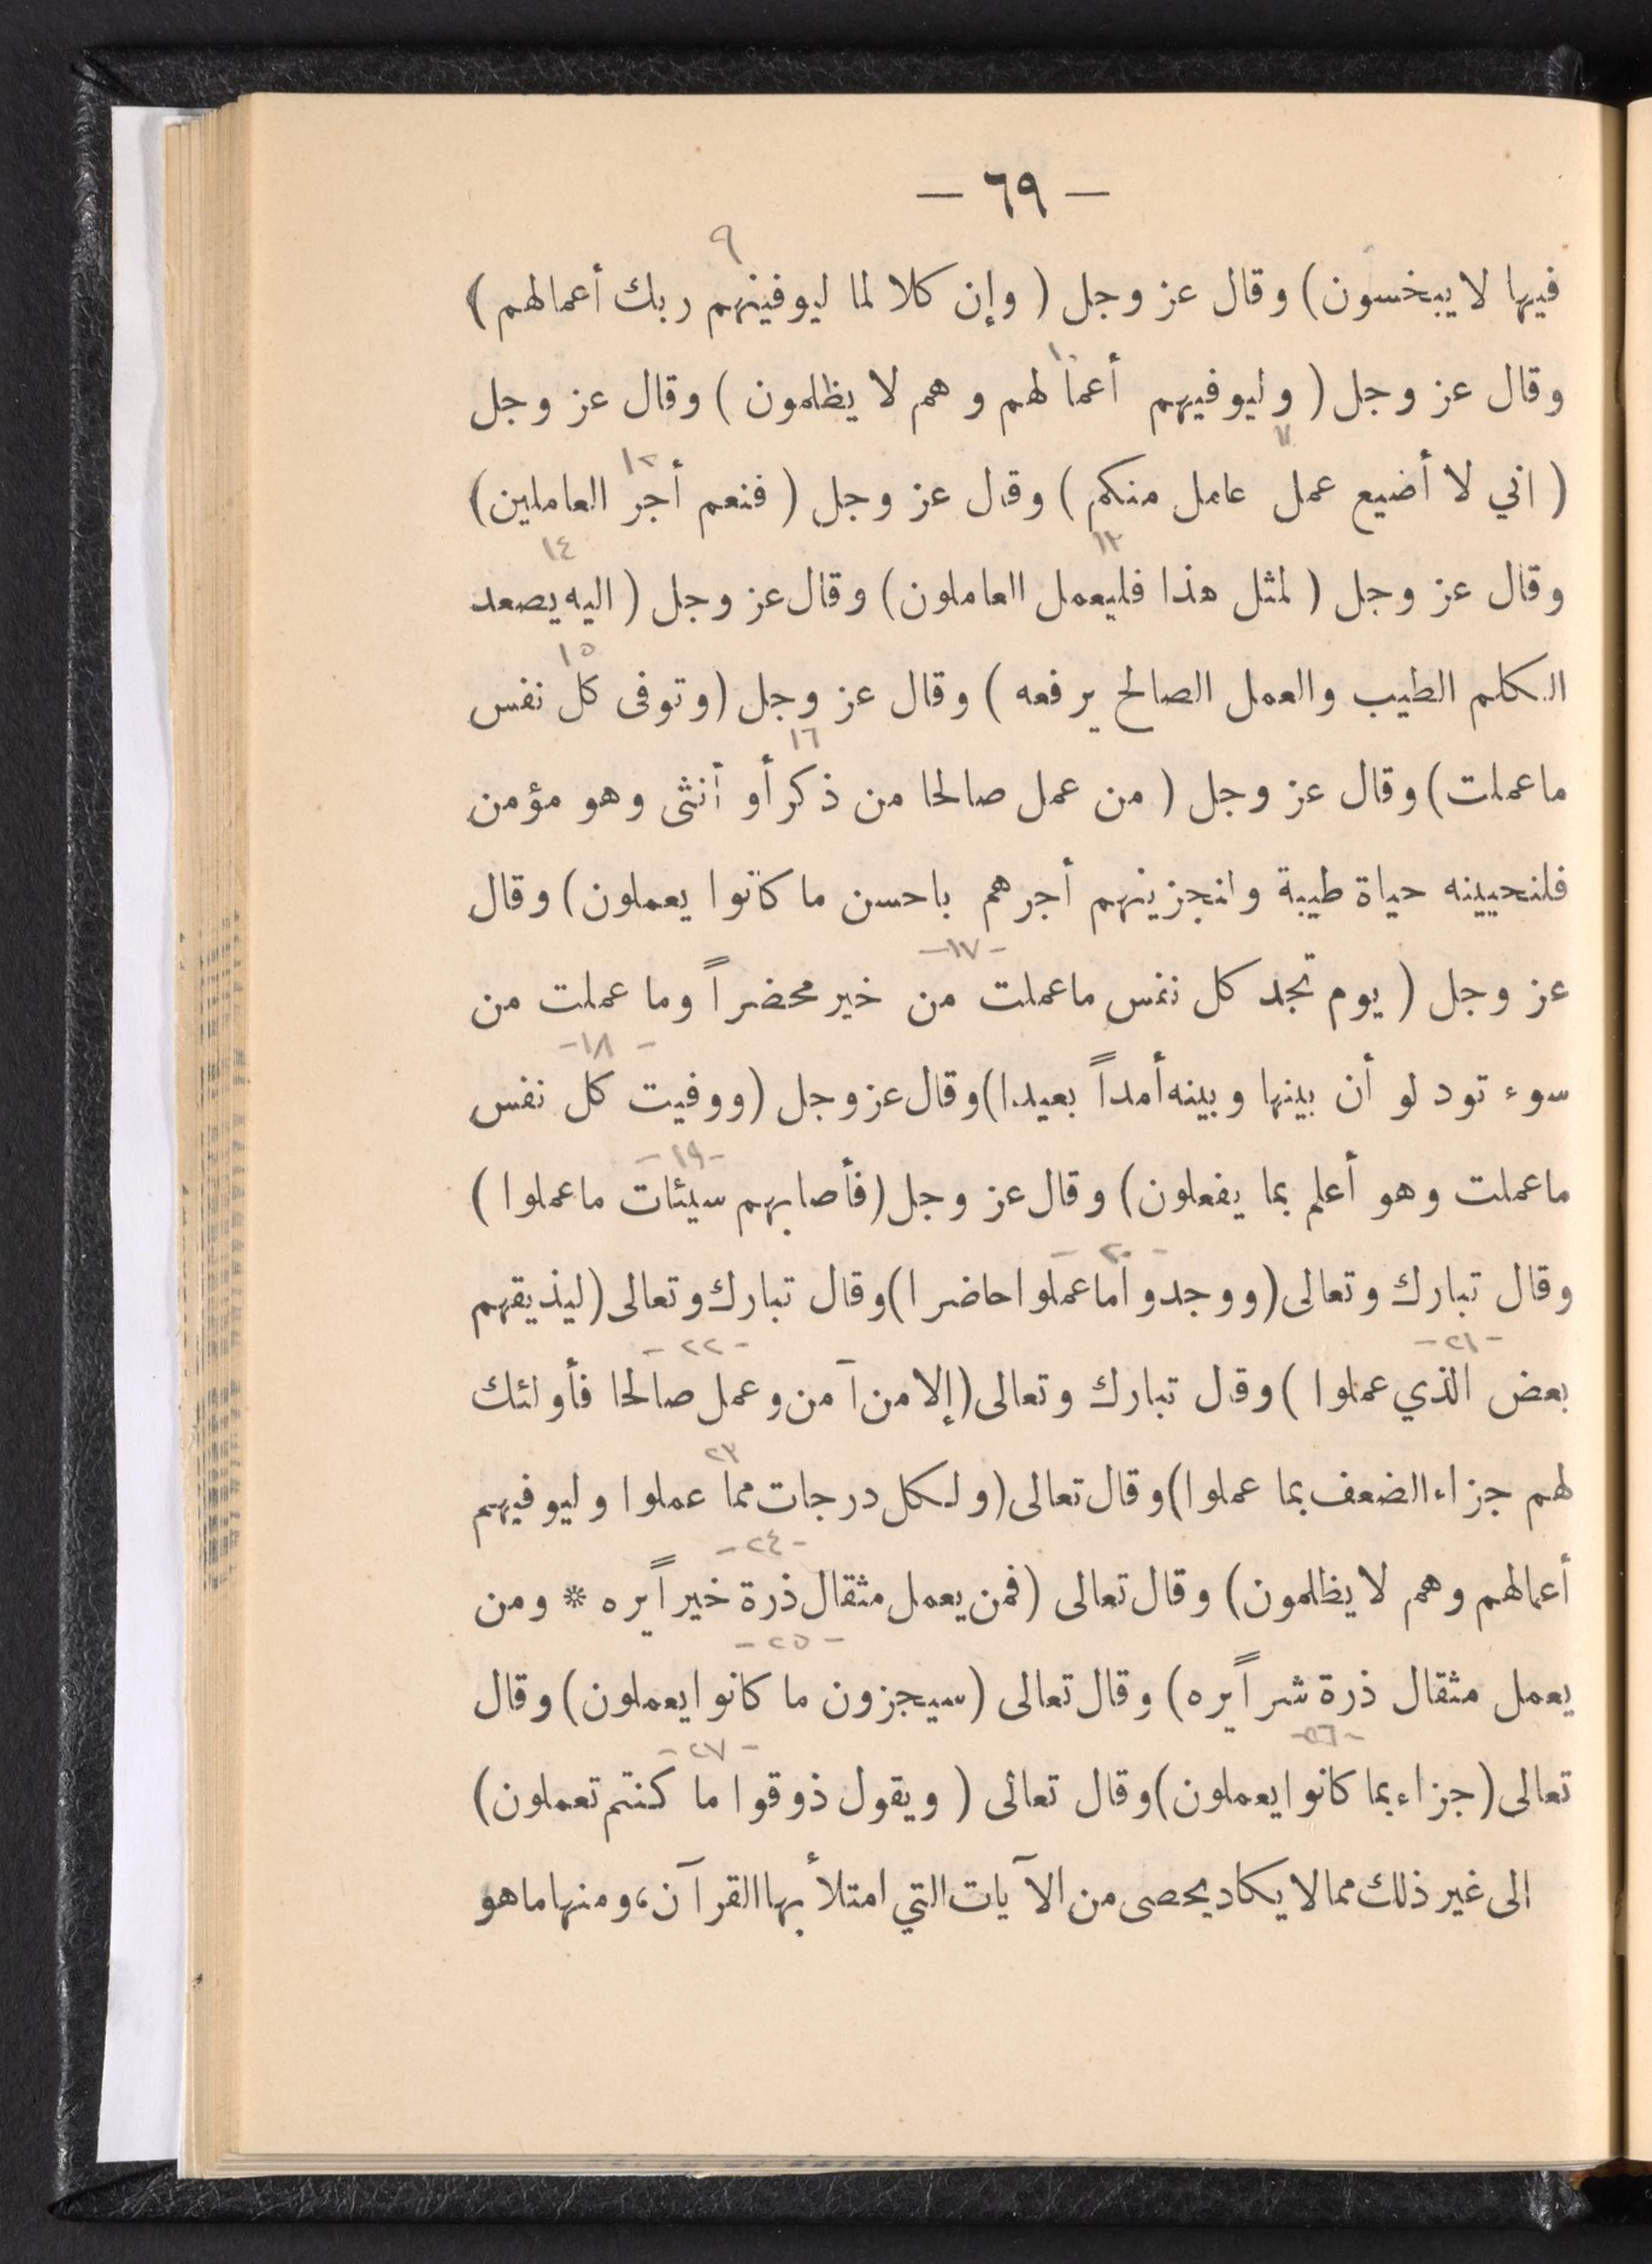 — ٦٩ —
٩
فيها لا يبخسون) وقال عز وجل ( وإن كلا لما ليوفينهم ربك أعمالهم )
١٠
وقال عز وجل ( وليوفيهم أعمالهم وهم لا يظلمون ) وقال عز وجل
١١ ١٢
( اني لا أضيع عمل عامل منكم ) وقال عز وجل ( فنعم أجر العاملين)
١٣ ١٤
وقال عز وجل ( لمثل هذا فليعمل العاملون) وقال عز وجل ( اليه يصعد
١٥
الكلم الطيب والعمل الصالح يرفعه ) وقال عز وجل (وتوفى كل نفس
١٦
ما عملت) وقال عز وجل ( من عمل صالحا من ذكر أو أنثى وهو مؤمن
فلنحيينه حياة طيبة ولنجزينهم أجرهم باحسن ما كانوا يعملون) وقال
-١٧-
عز وجل ( يوم تجد كل نفس ما عملت من خير محضراً وما عملت من
-١٨-
سوء تود لو أن بينها وبينه أمداً بعيدا) وقال عز وجل (ووفيت كل نفس
-١٩-
ما عملت وهو أعلم بما يفعلون) وقال عز وجل (فأصابهم سيئات ما عملوا )
-٢٠-
وقال تبارك وتعالى (ووجدوا ما عملوا حاضرا) وقال تبارك وتعالى (ليذيقهم
-٢١- -٢٢-
بعض الذي عملوا ) وقال تبارك وتعالى (إلا من آمن وعمل صالحا فأولئك
٢٣
لهم جزاء الضعف بما عملوا) وقال تعالى (ولكل درجات مما عملوا وليوفيهم
-٢٤-
أعمالهم وهم لا يظلمون) وقال تعالى (فمن يعمل مثقال ذرة خيراً يره * ومن
-٢٥-
يعمل مثقال ذرة شراً يره) وقال تعالى (سيجزون ما كانوا يعملون) وقال
-٢٦- -٢٧-
تعالى (جزاء بما كانوا يعملون) وقال تعالى ( ويقول ذوقوا ما كنتم تعملون)
الى غير ذلك مما لا يكاد يحصى من الآيات التي امتلأ بها القرآن، ومنها ما هو